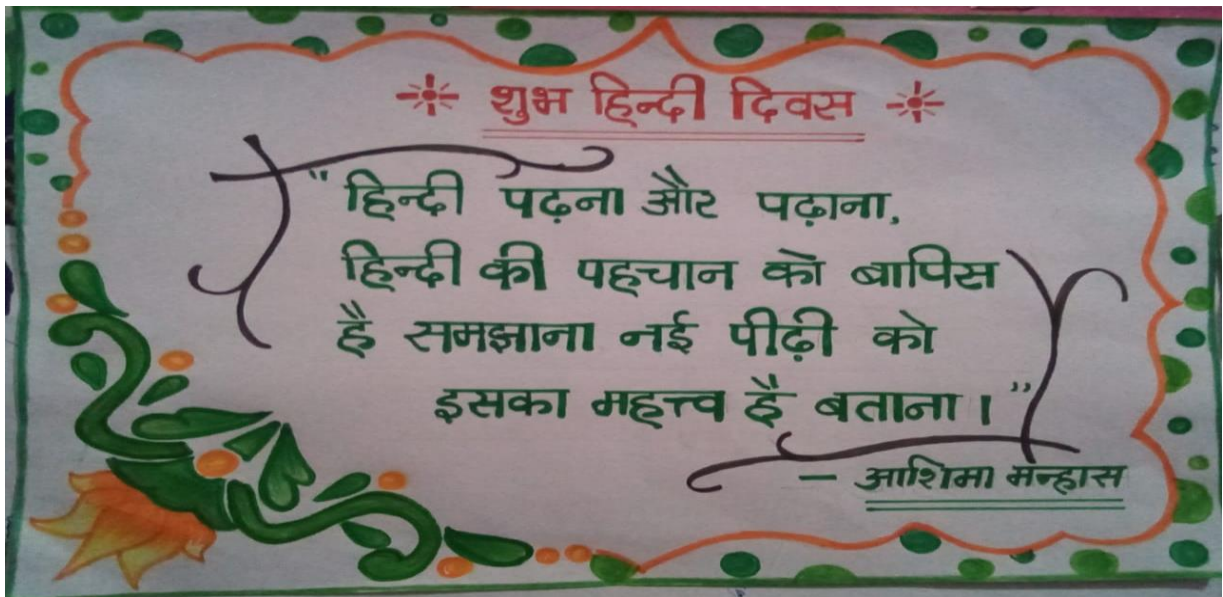 शुभ हिन्दी दिवस
"हिन्दी पढ़ना और पढ़ाना,
हिन्दी की पहचान को बापिस
है समझाना नई पीढ़ी को
इसका महत्त्व है बताना।"
- आशिमा मन्हास